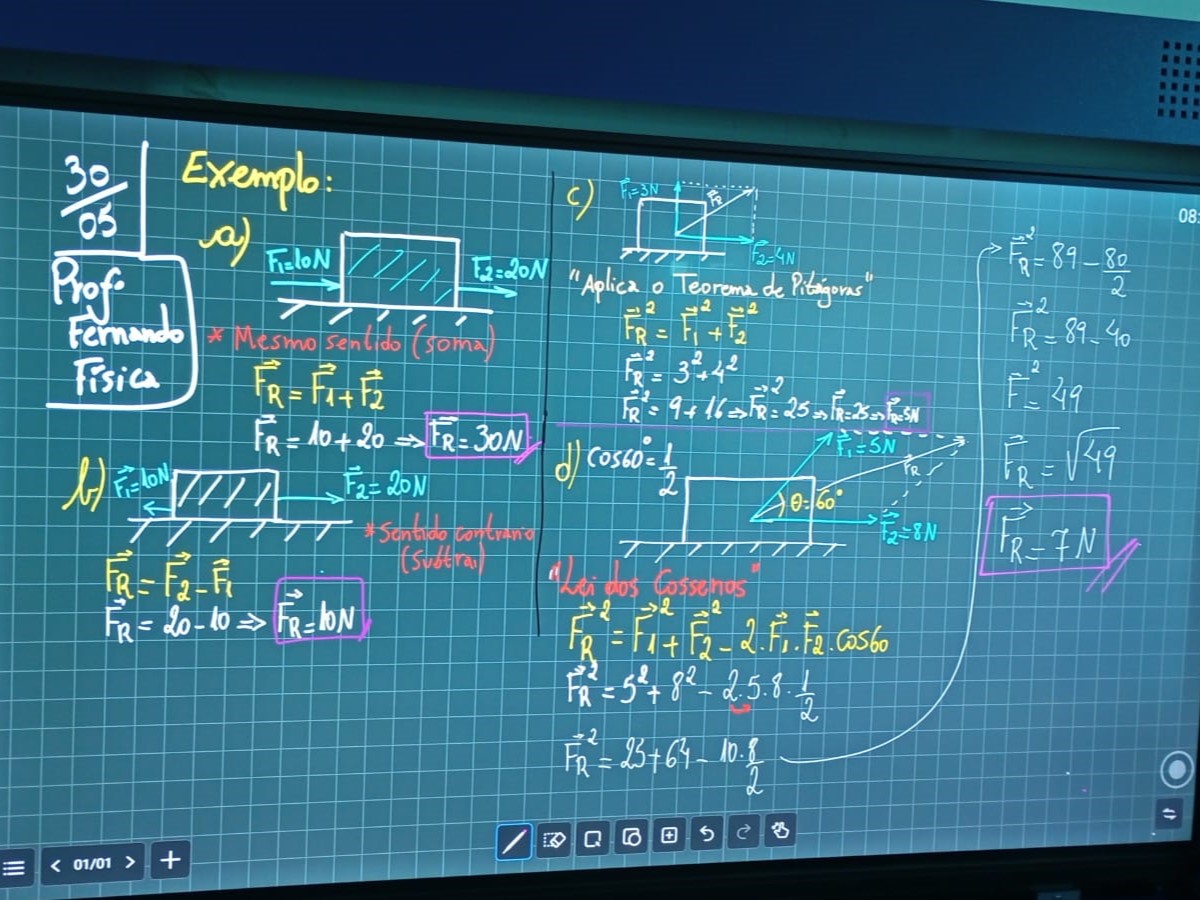 30
05
Prof.
Fernando
Física
Exemplo:
a)
F₁=10N
F₂=20N
* Mesmo sentido (soma)
F⃗R = F⃗₁ + F⃗₂
F⃗R = 10 + 20 ⇒ F⃗R = 30N
b)
F⃗₁=10N
F⃗₂ = 20N
* Sentido contrário
(subtrai)
F⃗R = F⃗₂ - F⃗₁
F⃗R = 20 - 10 ⇒ F⃗R = 10N
c)
F⃗₁=3N
F⃗R
F⃗₂=4N
"Aplica o Teorema de Pitágoras"
F⃗R² = F⃗₁² + F⃗₂²
F⃗R² = 3² + 4²
F⃗R² = 9 + 16 ⇒ F⃗R² = 25 ⇒ F⃗R = 25 ⇒ F⃗R = 5N
d)
cos60° = 1/2
F⃗₁ = 5N
F⃗R
θ = 60°
F⃗₂ = 8N
"Lei dos Cossenos"
F⃗R² = F⃗₁² + F⃗₂² - 2.F⃗₁.F⃗₂.cos60
F⃗R² = 5² + 8² - 2.5.8.1/2
F⃗R² = 25 + 64 - 10.8/2
F⃗R² = 89 - 80/2
F⃗R² = 89 - 40
F⃗² = 49
F⃗R = √49
F⃗R = 7N
08:
01/01